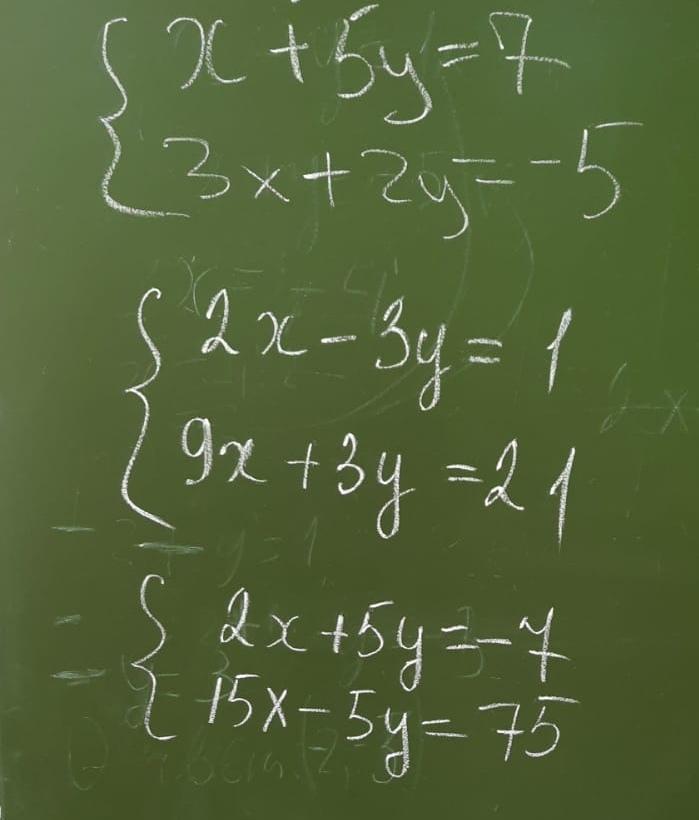 x + 5y = 7
3x + 2y = -5
2x - 3y = 1
9x + 3y = 21
2x + 5y = -7
15x - 5y = 75